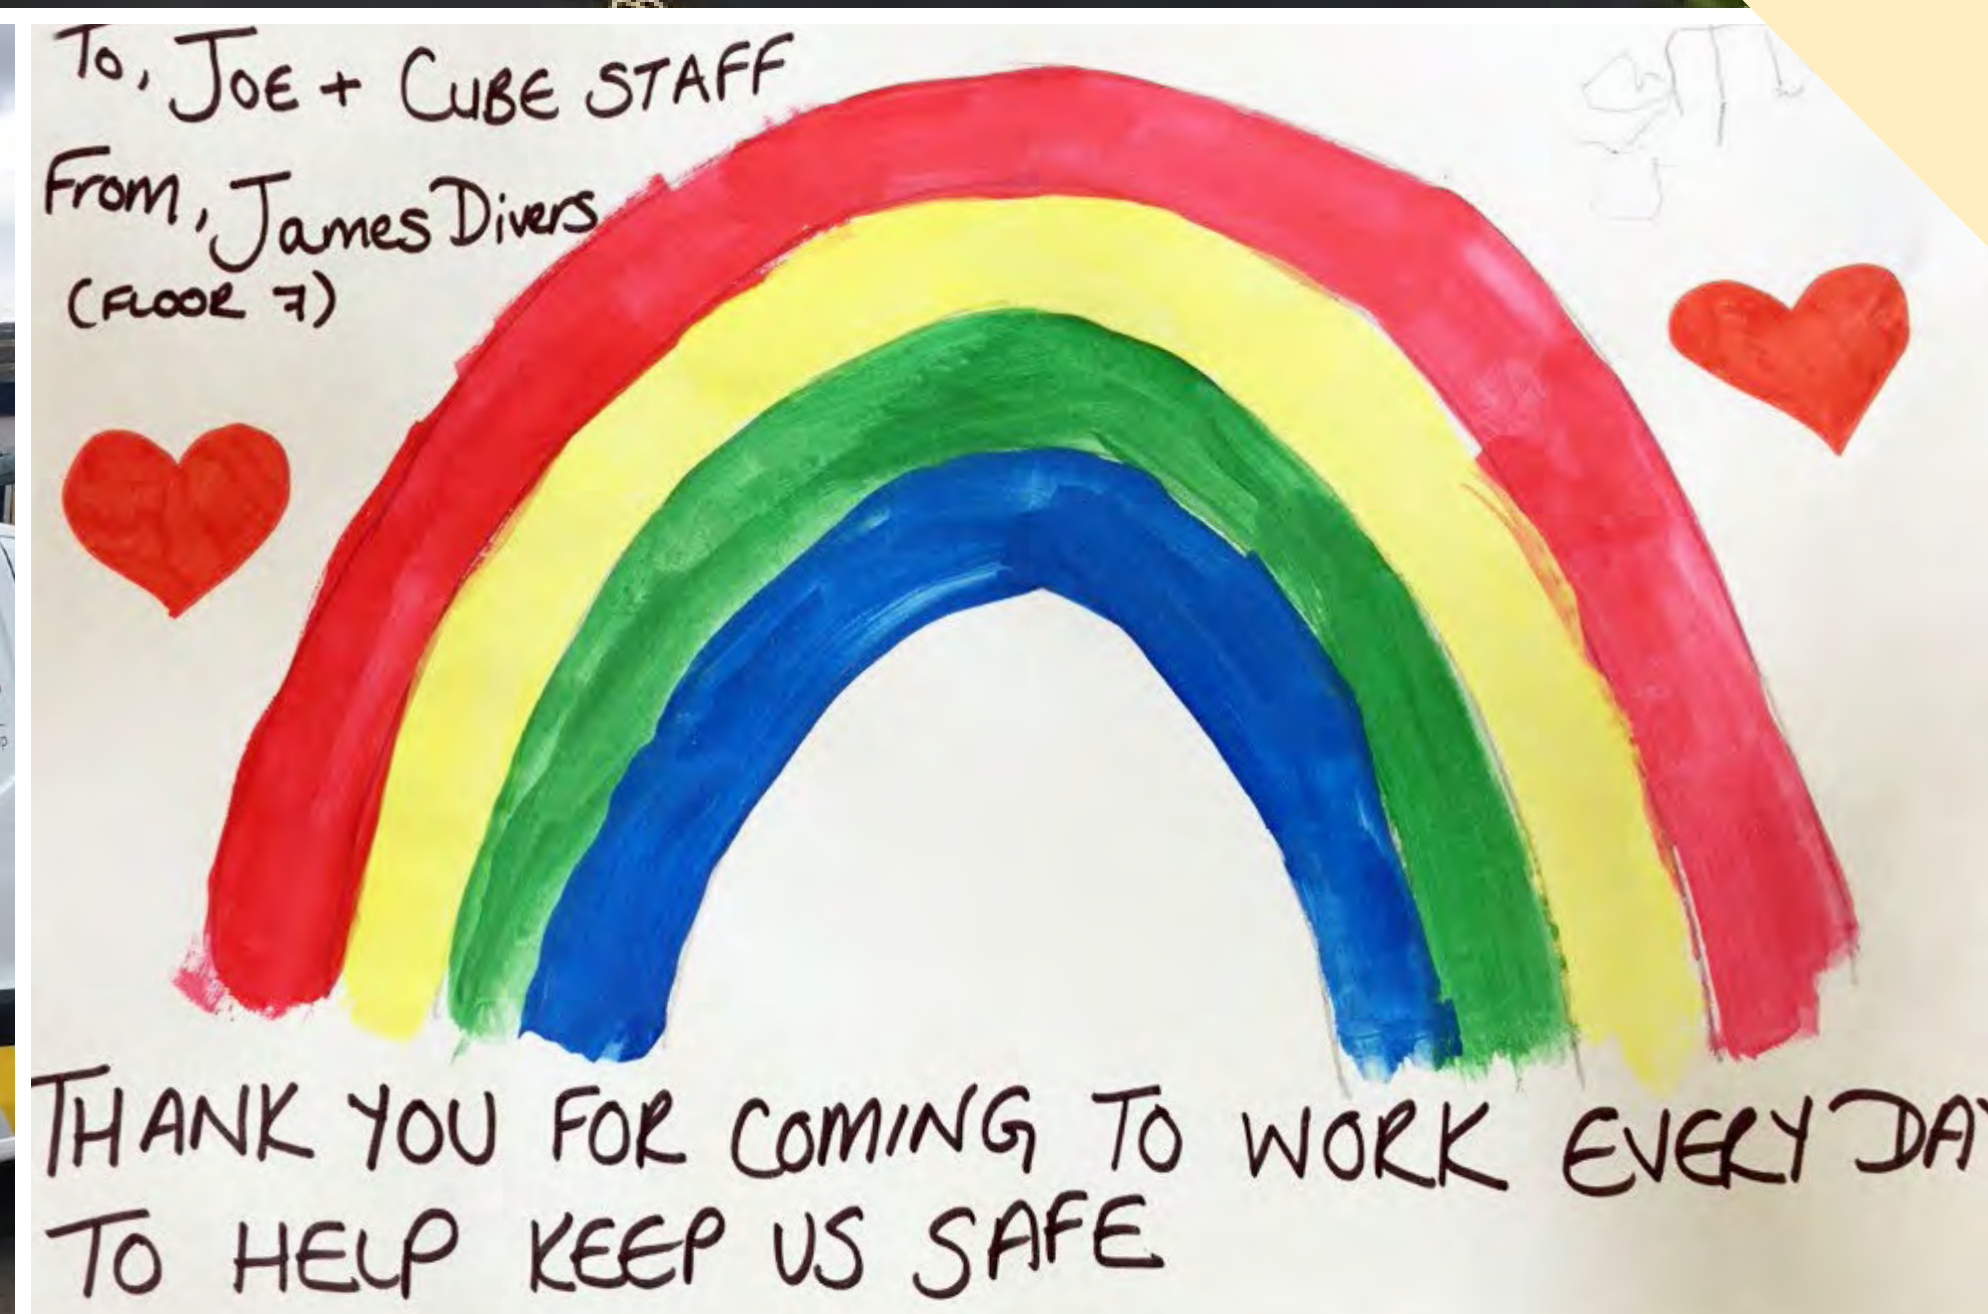 To, JOE + CUBE STAFF
From, James Divers
(FLOOR 7)
THANK YOU FOR COMING TO WORK EVERY DAY
TO HELP KEEP US SAFE